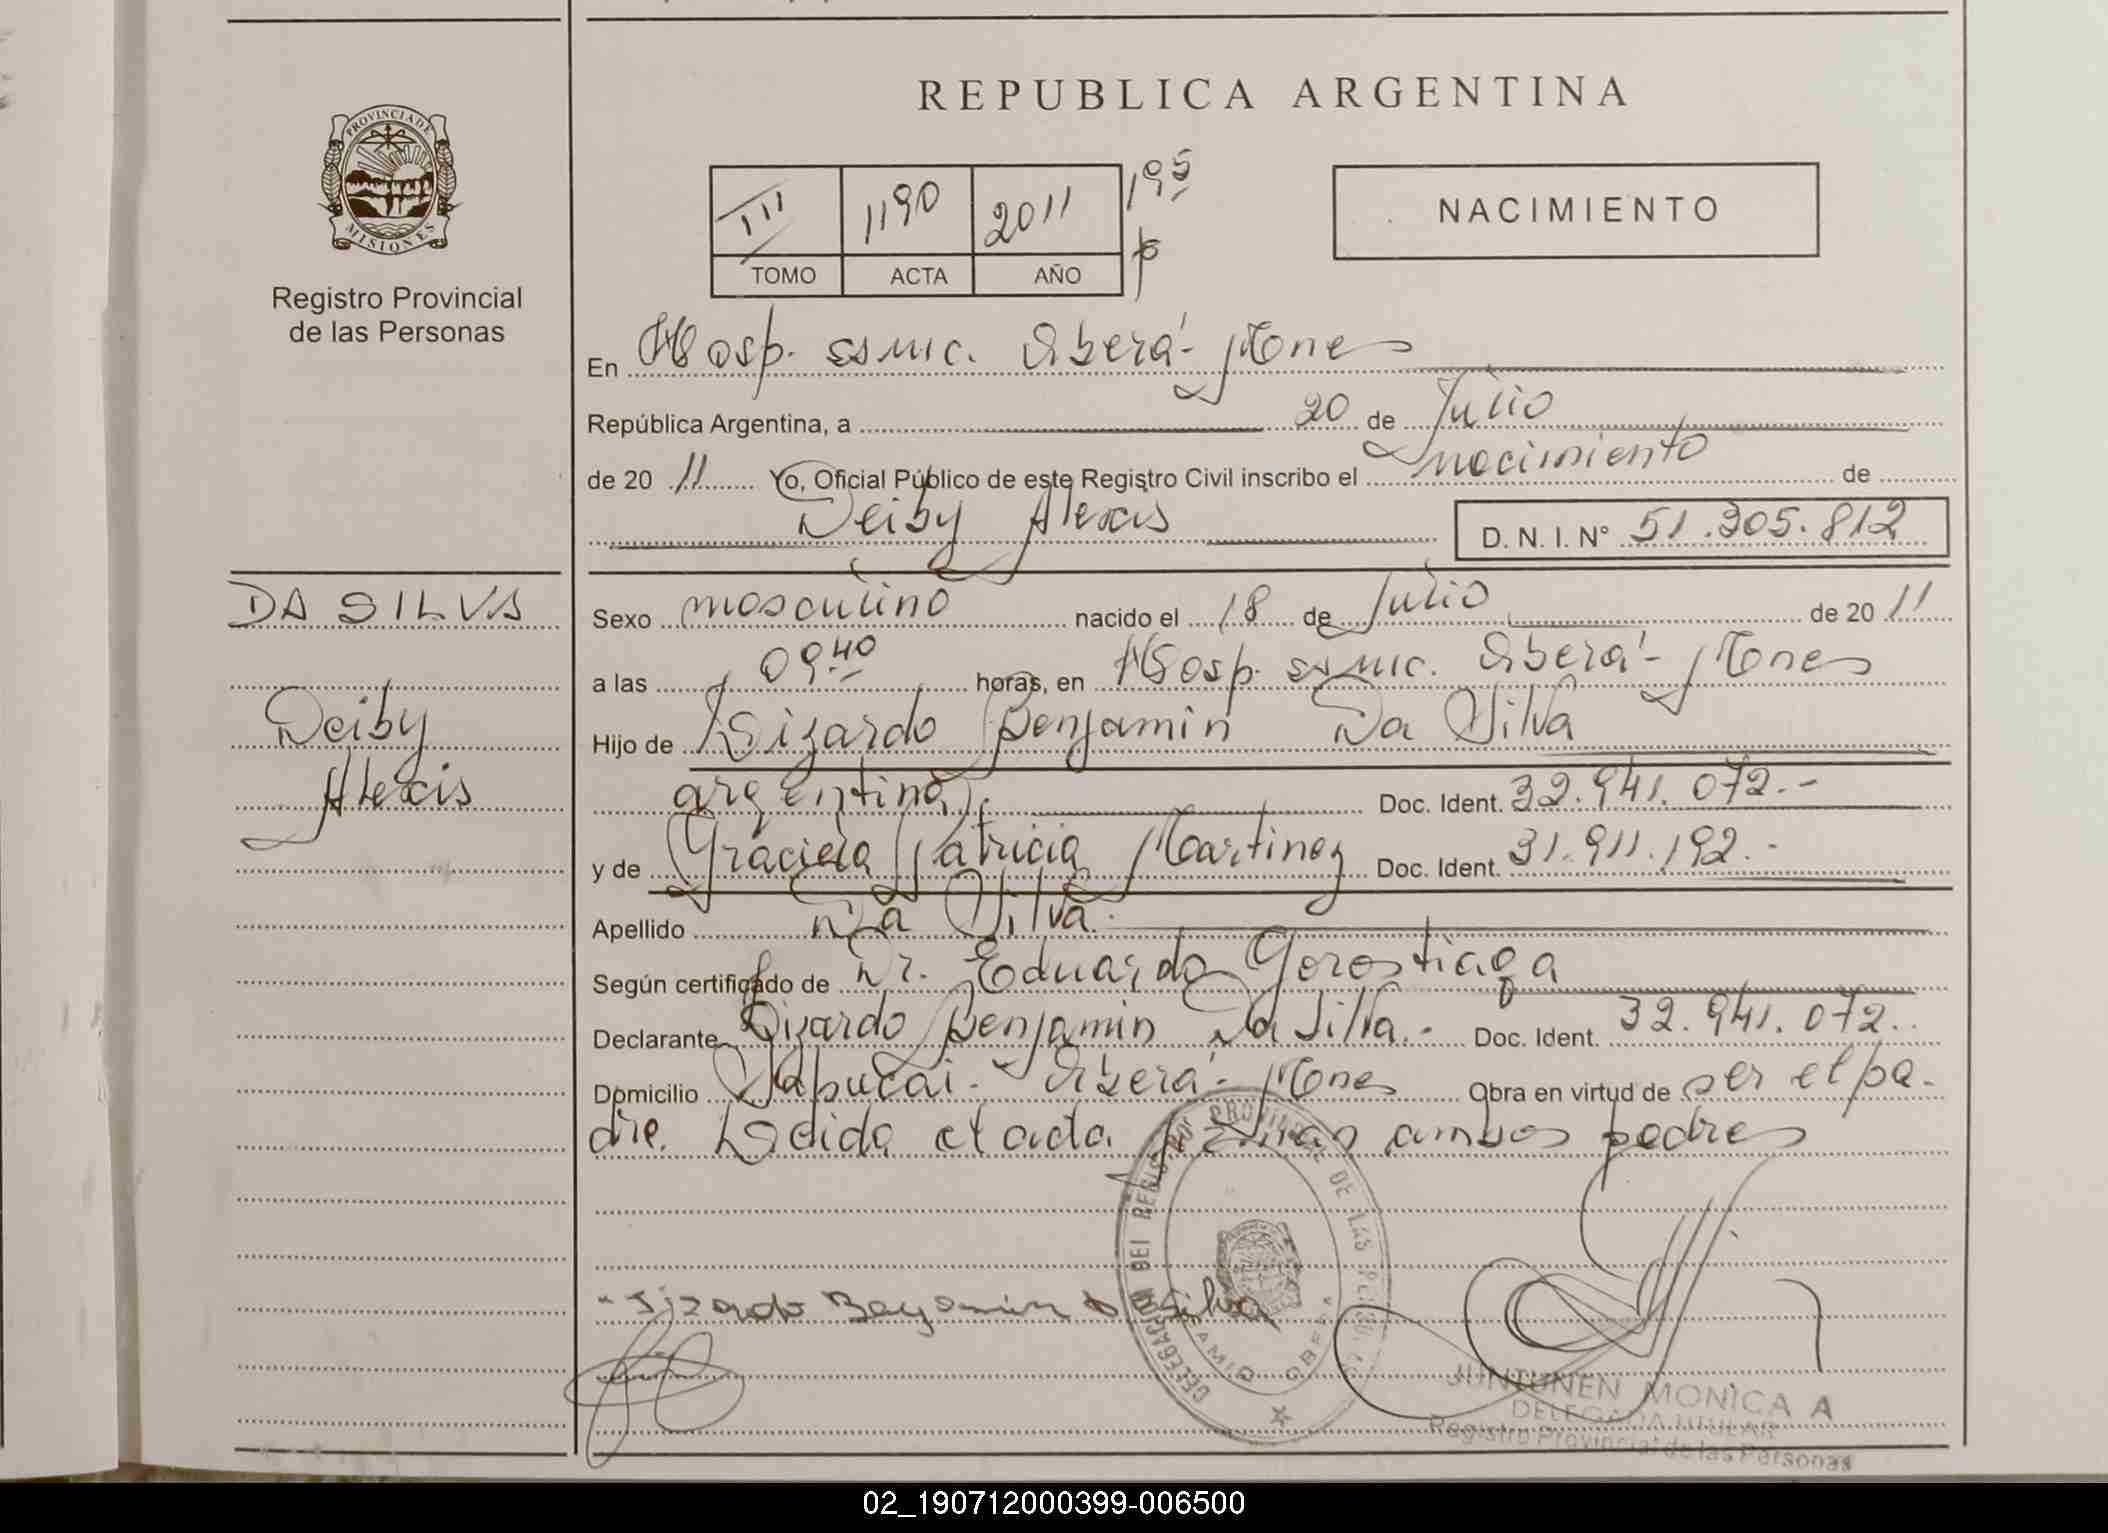 REPUBLICA ARGENTINA
PROVINCIA DE
MISIONES
Registro Provincial
de las Personas
III 1190 2011 195
TOMO ACTA AÑO
NACIMIENTO
En Hosp. ssmic. Oberá - Mones
República Argentina, a 20 de Julio
de 20 11 Yo, Oficial Público de este Registro Civil inscribo el nacimiento de
Deiby Alexis D. N. I. N° 51.305.812
DA SILVA
Deiby
Alexis
Sexo masculino nacido el 18 de Julio de 20 11
a las 09 40 horas, en Hosp. ssmic. Oberá - Mones
Hijo de Lizardo Benjamin Da Silva
argentino Doc. Ident. 32.941.072.-
y de Graciela Patricia Martinez Doc. Ident. 31.911.192.-
Apellido Da Silva.
Según certificado de Dr. Eduardo Gorostiaga
Declarante Lizardo Benjamin Da Silva.- Doc. Ident. 32.941.072..
Domicilio Yapucai - Oberá - Mones Obra en virtud de ser el pa-
dre. Leida el acta firman ambos padres
Lizardo Benjamin Da Silva
DELEGACION DEL REGISTRO PROVINCIAL DE LAS PERSONAS
OBERA
JUNTUNEN MONICA A
DELEGADA TITULAR
Registro Provincial de las Personas
02_190712000399-006500